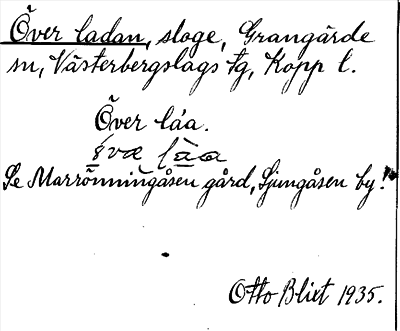 Över ladan, sloge, Grangärde
sn, Västerbergslags tg, Kopp l.
Över låa.
Se Marrönningåsen gård, Ljungåsen by!
Otto Blixt 1935.